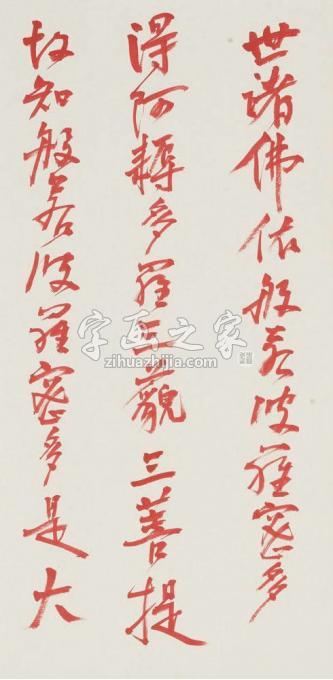 世諸佛依般若波羅蜜多
得阿耨多羅三藐三菩提
故知般若波羅蜜多是大
字画之家
zihuazhijia.com